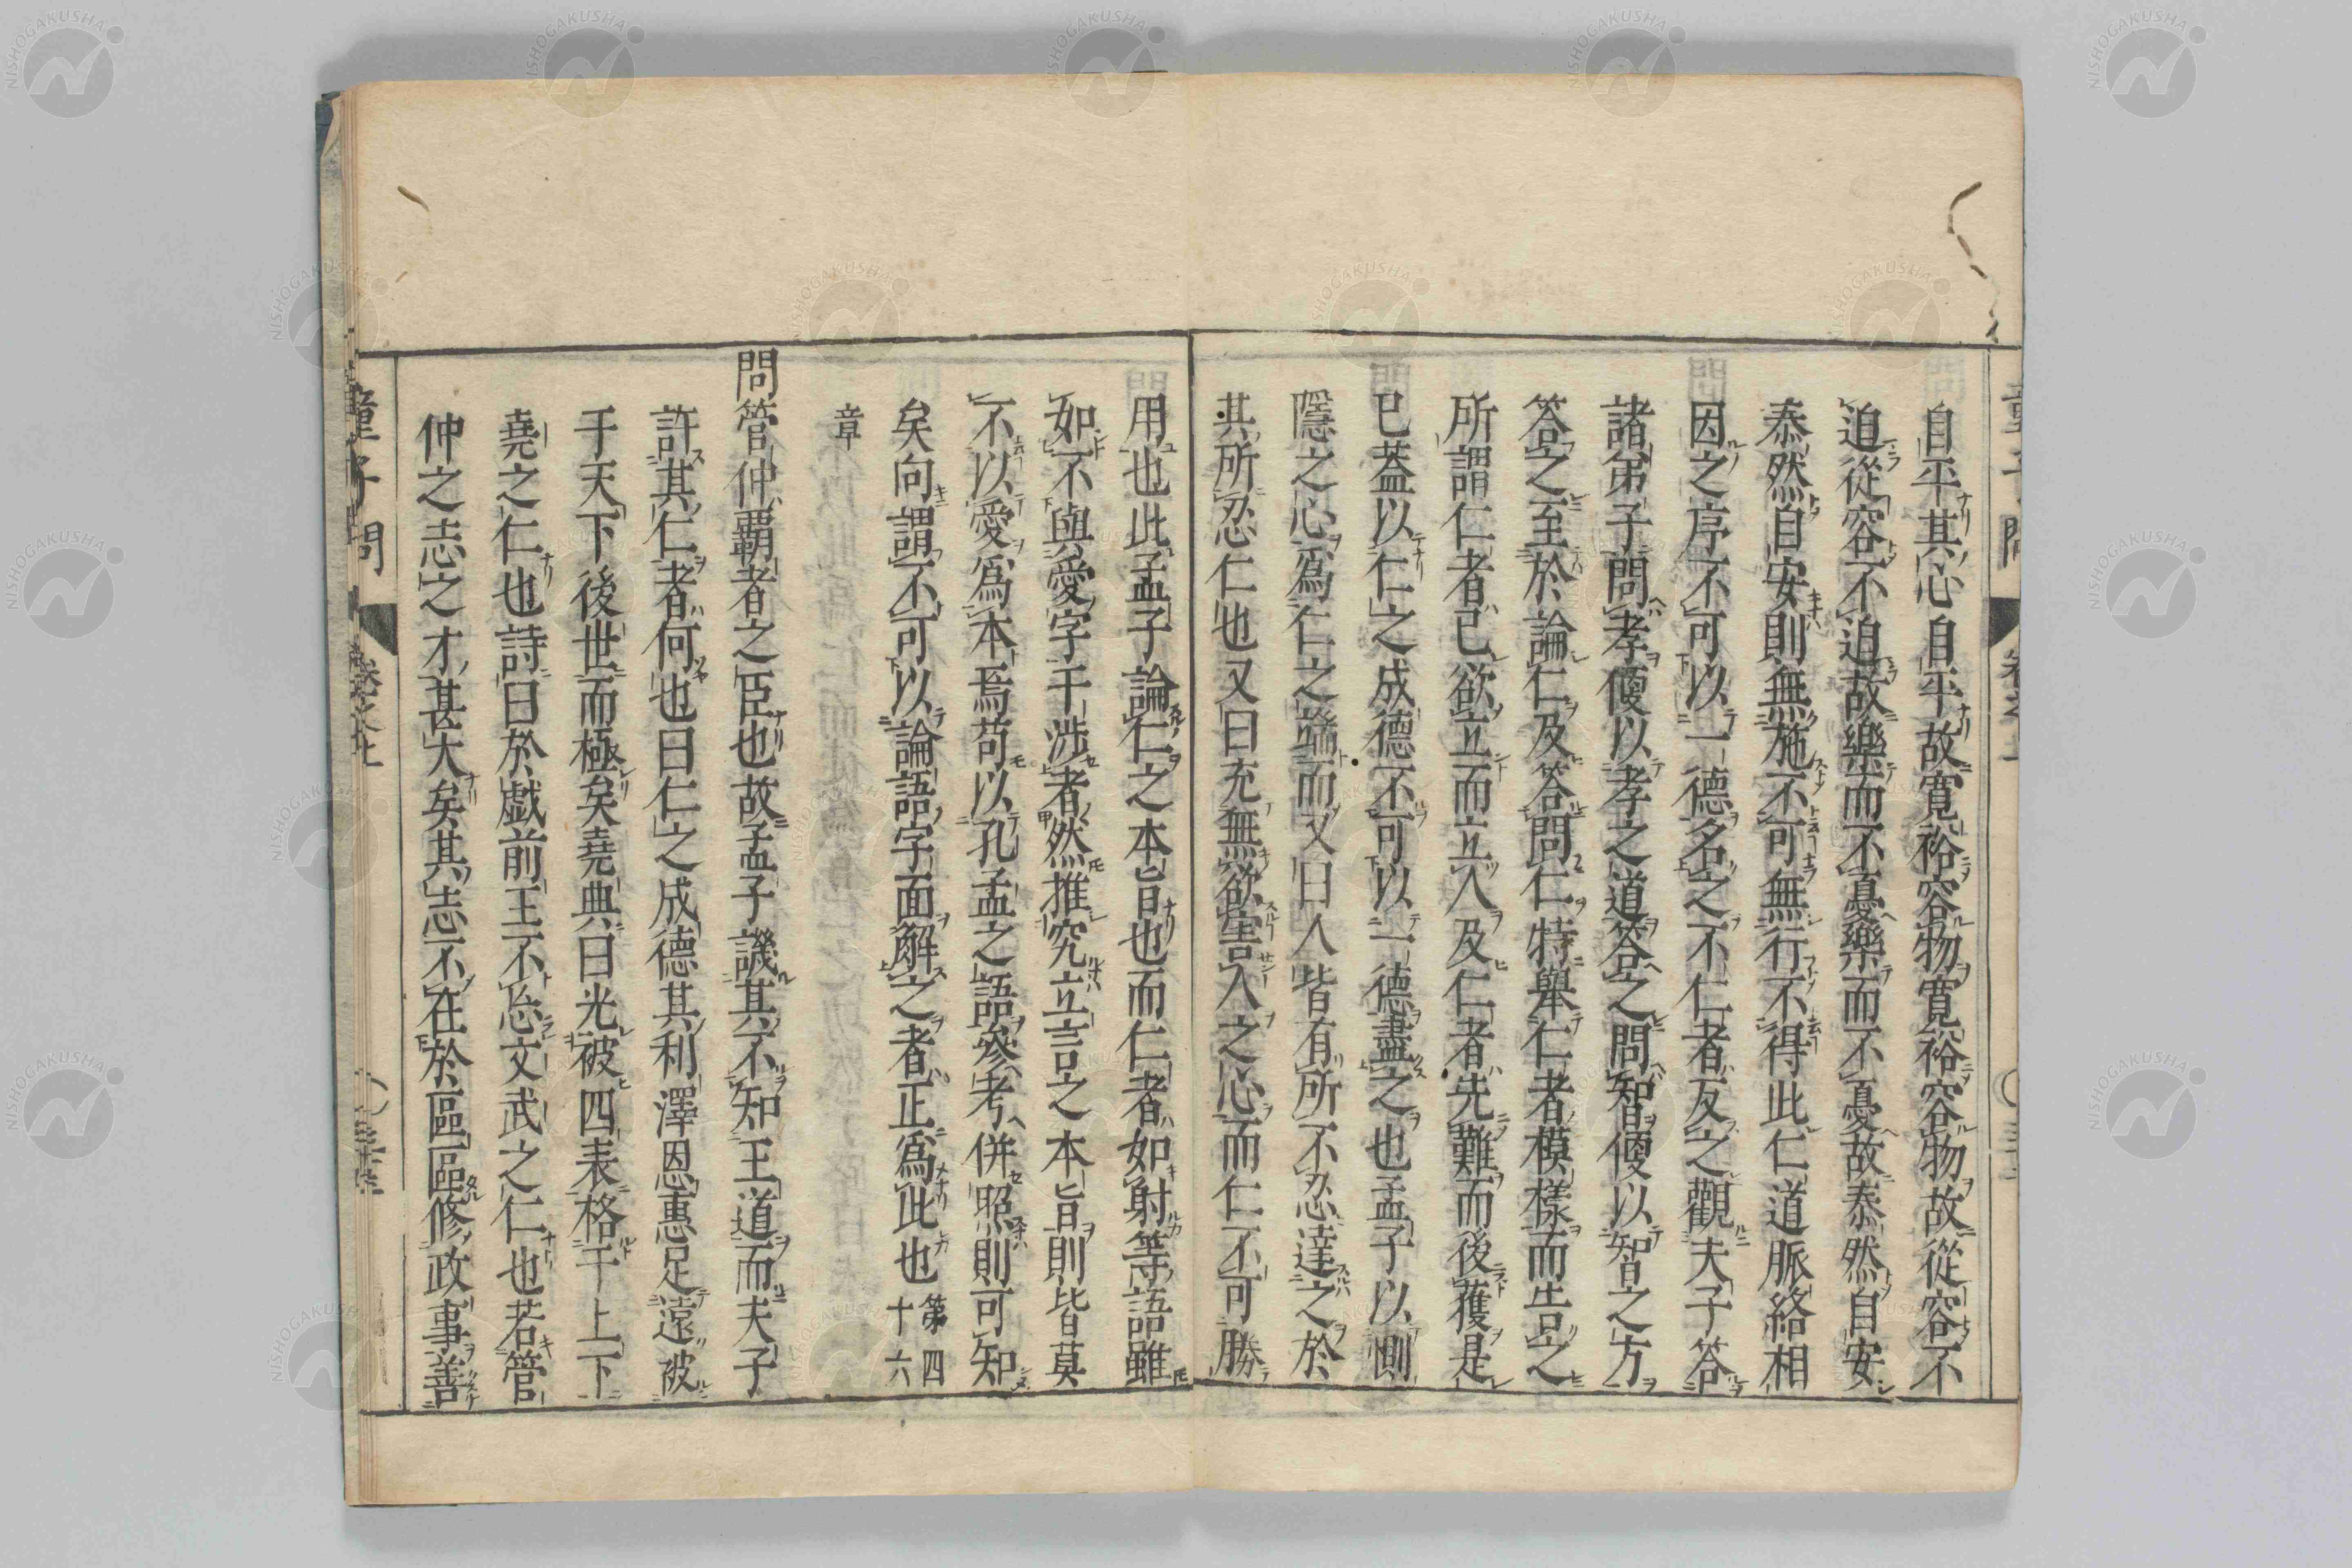 自平其心自平故寛裕容物寛裕容物故從容不
迫從容不迫故樂而不憂樂而不憂故泰然自安
泰然自安則無施不可無行不得此仁道脈絡相
因之序不可以一德名之不仁者反之觀夫子答
諸弟子問孝便以孝之道答之問智便以智之方
答之至於論仁及答問仁特舉仁者模樣而告之
所謂仁者己欲立而立人及仁者先難而後獲是
已蓋以仁之成德不可以一德盡之也孟子以惻
隱之心爲仁之端而又曰人皆有所不忍達之於
其所忍仁也又曰充無欲害人之心而仁不可勝
用也此孟子論仁之本旨也而仁者如射等語雖
如不與愛字干涉者然推究立言之本旨則皆莫
不以愛爲本焉苟以孔孟之語參考併照則可知
矣向謂不可以論語字面解之者正爲此也 第四十六
章
問管仲覇者之臣也故孟子譏其不知王道而夫子
許其仁者何也曰仁之成德其利澤恩惠足遠被
于天下後世而極矣堯典曰光被四表格于上下
堯之仁也詩曰於戯前王不忘文武之仁也若管
仲之志之才甚大矣其志不在於區區修政事善
童子問 卷之上
NISHOGAKUSHA